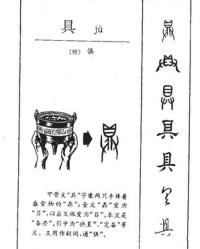 具 jù
（附）俱
甲骨文“具”字像两只手捧着
盛食物的“鼎”；金文“鼎”变为
“貝”，以后又讹变为“目”。本义是
“备办”，引申为“供置”、“完备”等
义。又用作副词，通“俱”。
具
具
具